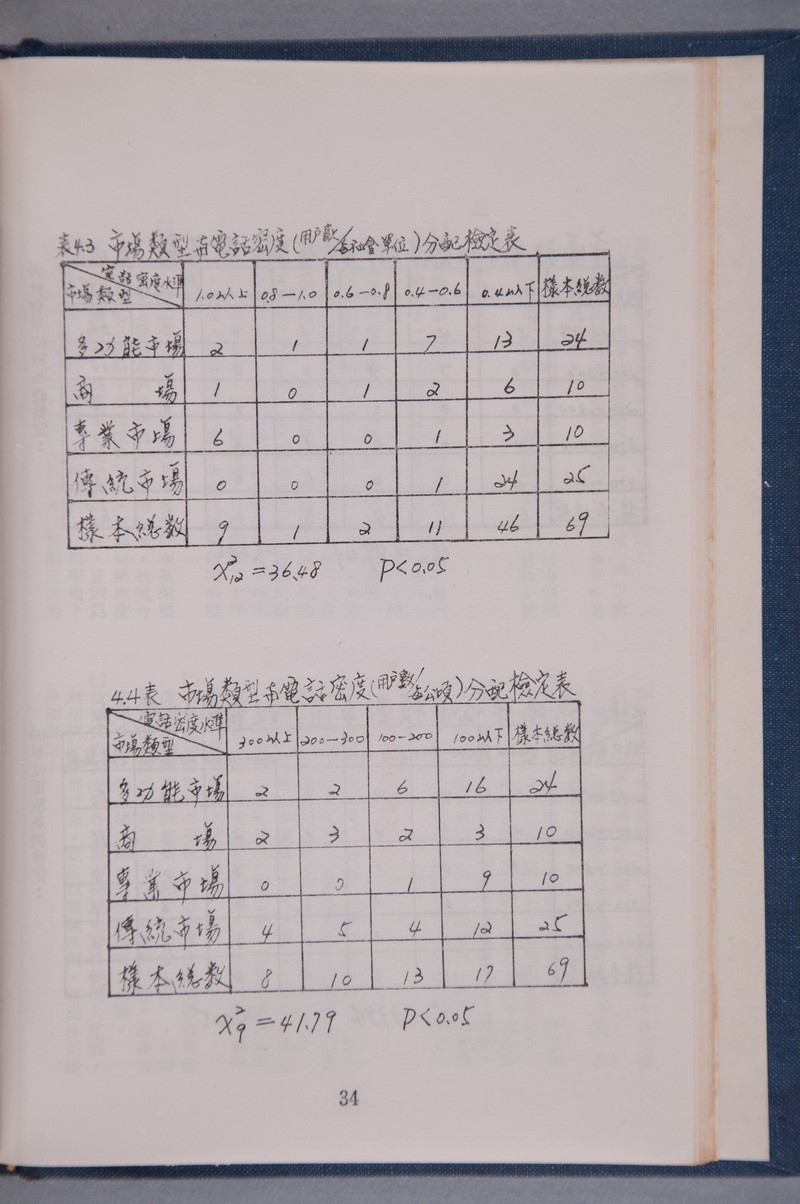 表4.3 市場類型市電話密度(用戶數/每社會單位)分配檢定表
電話密度水準
市場類型 1.0以上 0.8—1.0 0.6—0.8 0.4—0.6 0.4以下 樣本總數
多功能市場 2 1 1 7 13 24
商場 1 0 1 2 6 10
專業市場 6 0 0 1 3 10
傳統市場 0 0 0 1 24 25
樣本總數 9 1 2 11 46 69
χ²₁₂=36.48 P<0.05
4.4表 市場類型市電話密度(用戶數/每公頃)分配檢定表
電話密度水準
市場類型 300以上 200—300 100-200 100以下 樣本總數
多功能市場 2 2 6 16 24
商場 2 3 2 3 10
專業市場 0 0 1 9 10
傳統市場 4 5 4 12 25
樣本總數 8 10 13 17 69
χ²₉=41.79 P<0.05
34